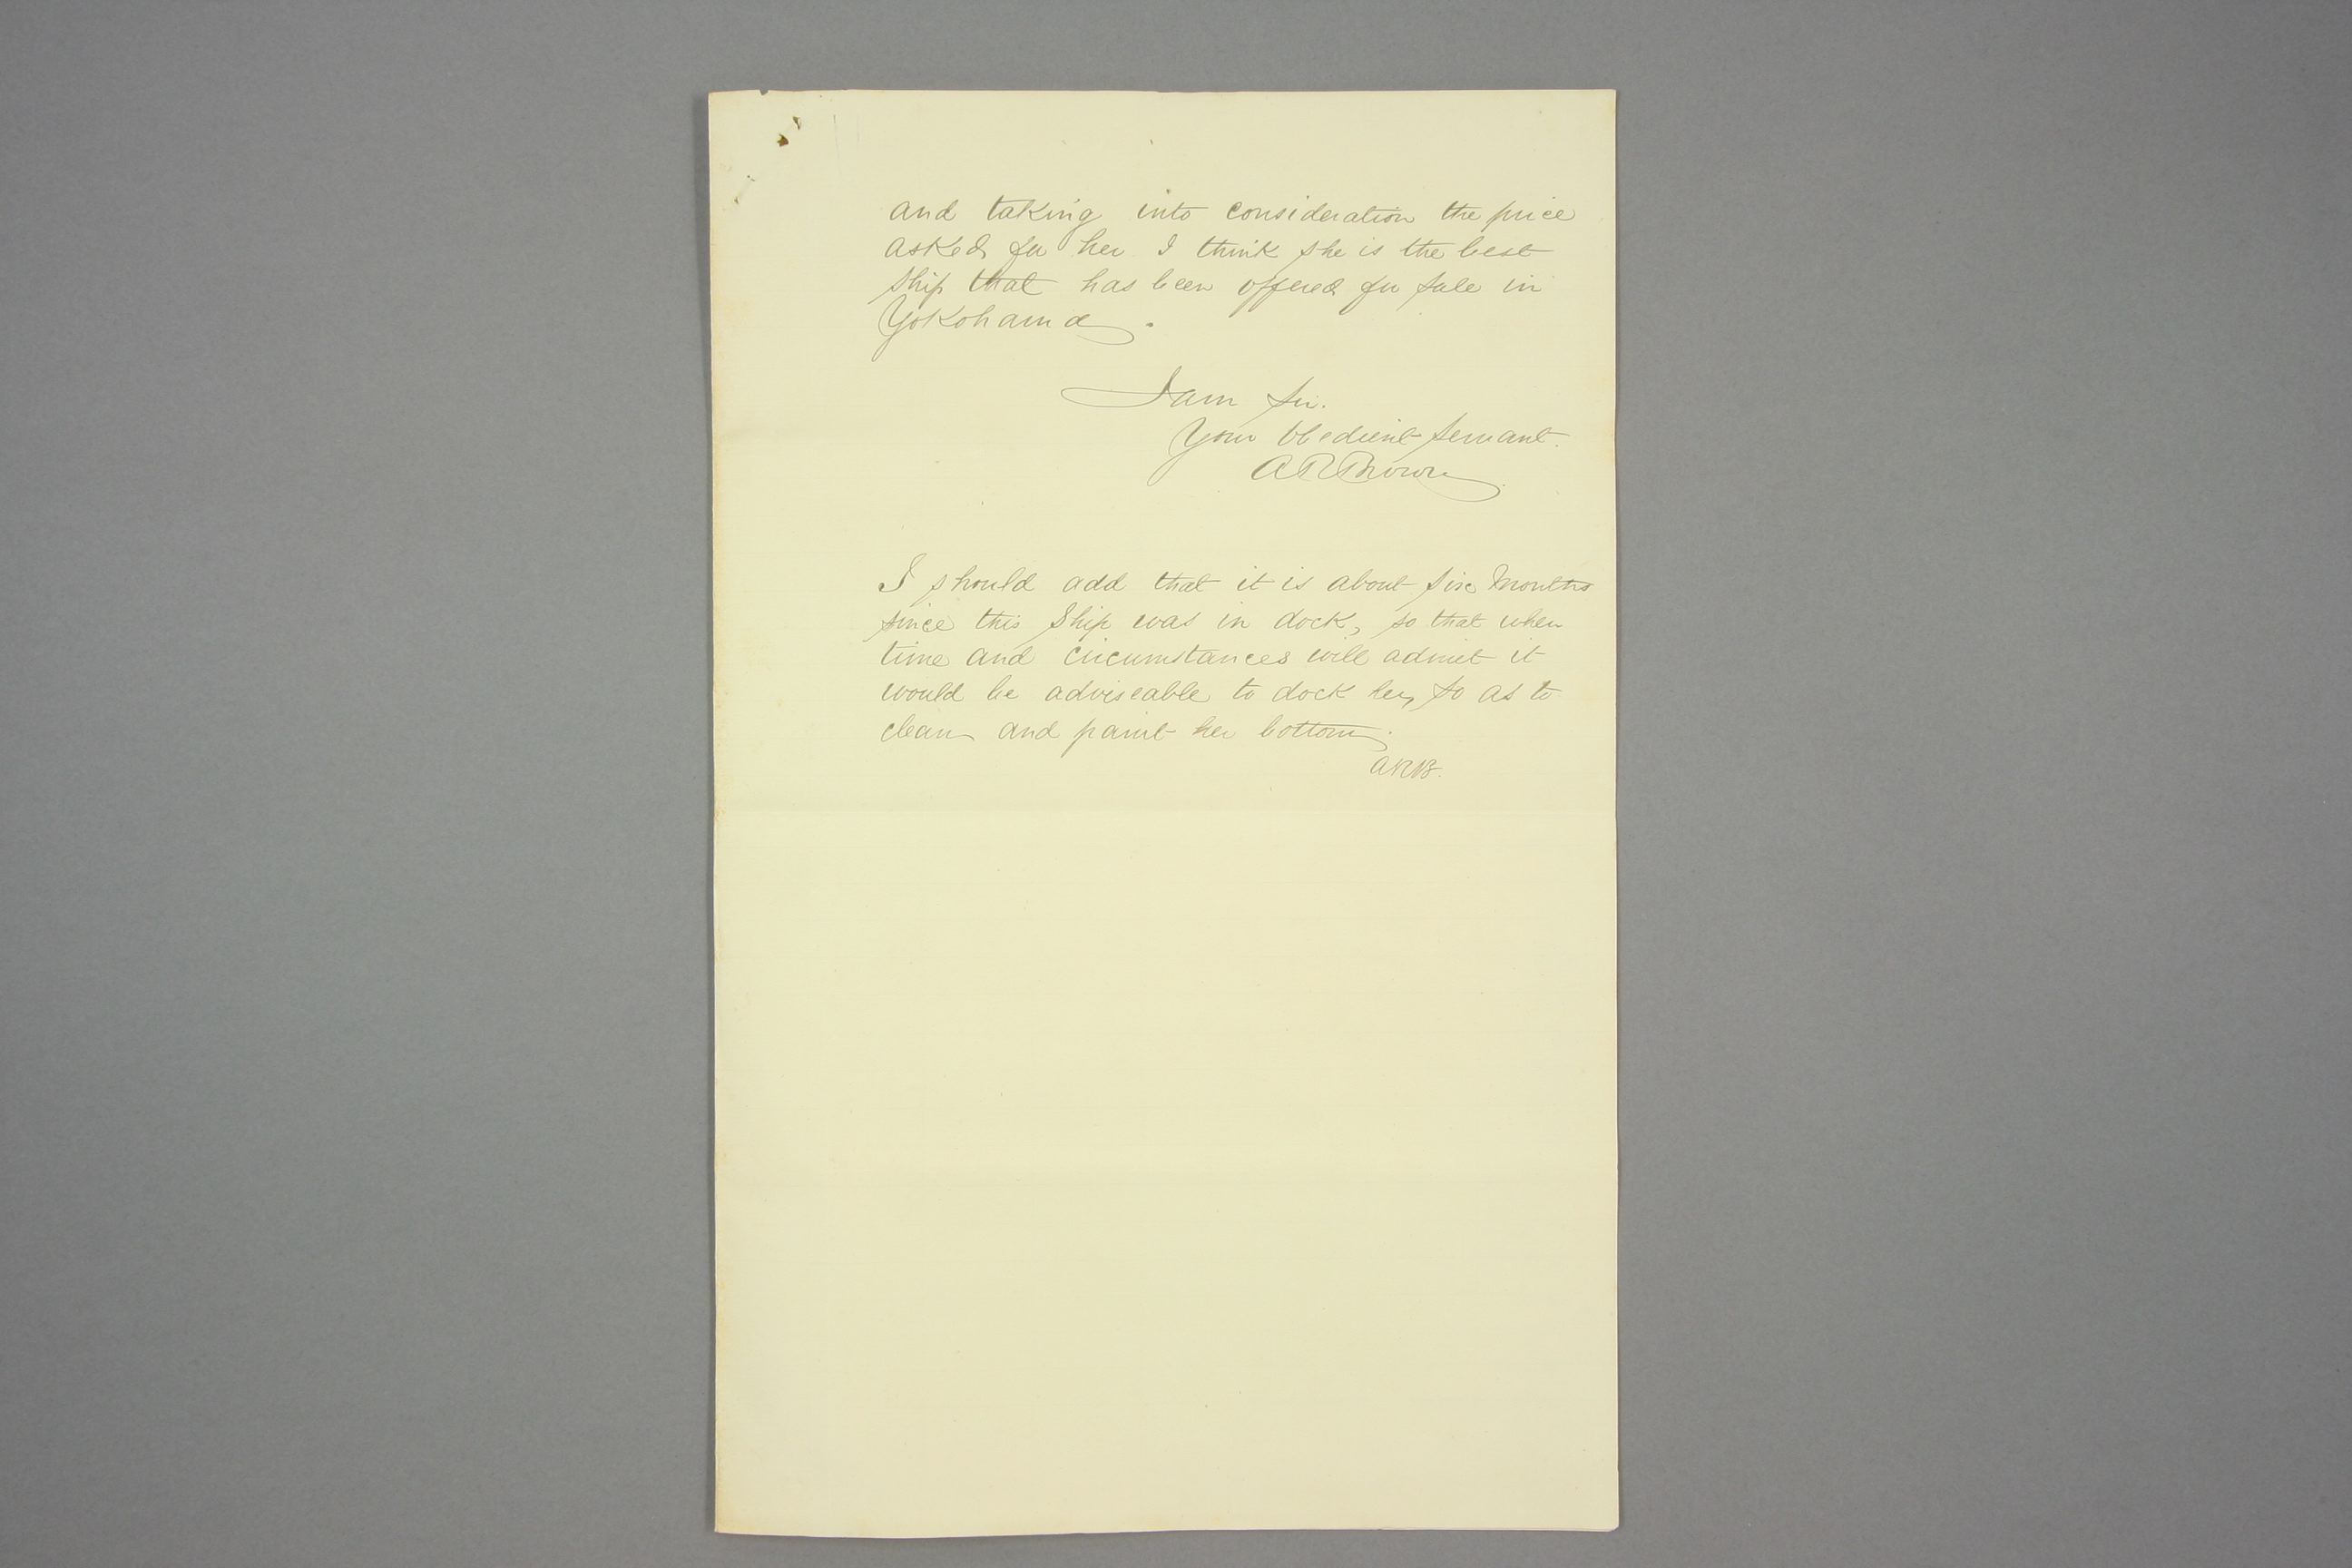 and taking into consideration the price
asked for her I think she is the best
ship that has been offered for sale in
Yokohama.
I am Sir.
Your Obedient Servant.
ARBrown
I should add that it is about six Months
since this Ship was in dock, so that when
time and circumstances will admit it
would be adviseable to dock her, so as to
clean and paint her bottom.
ARB.